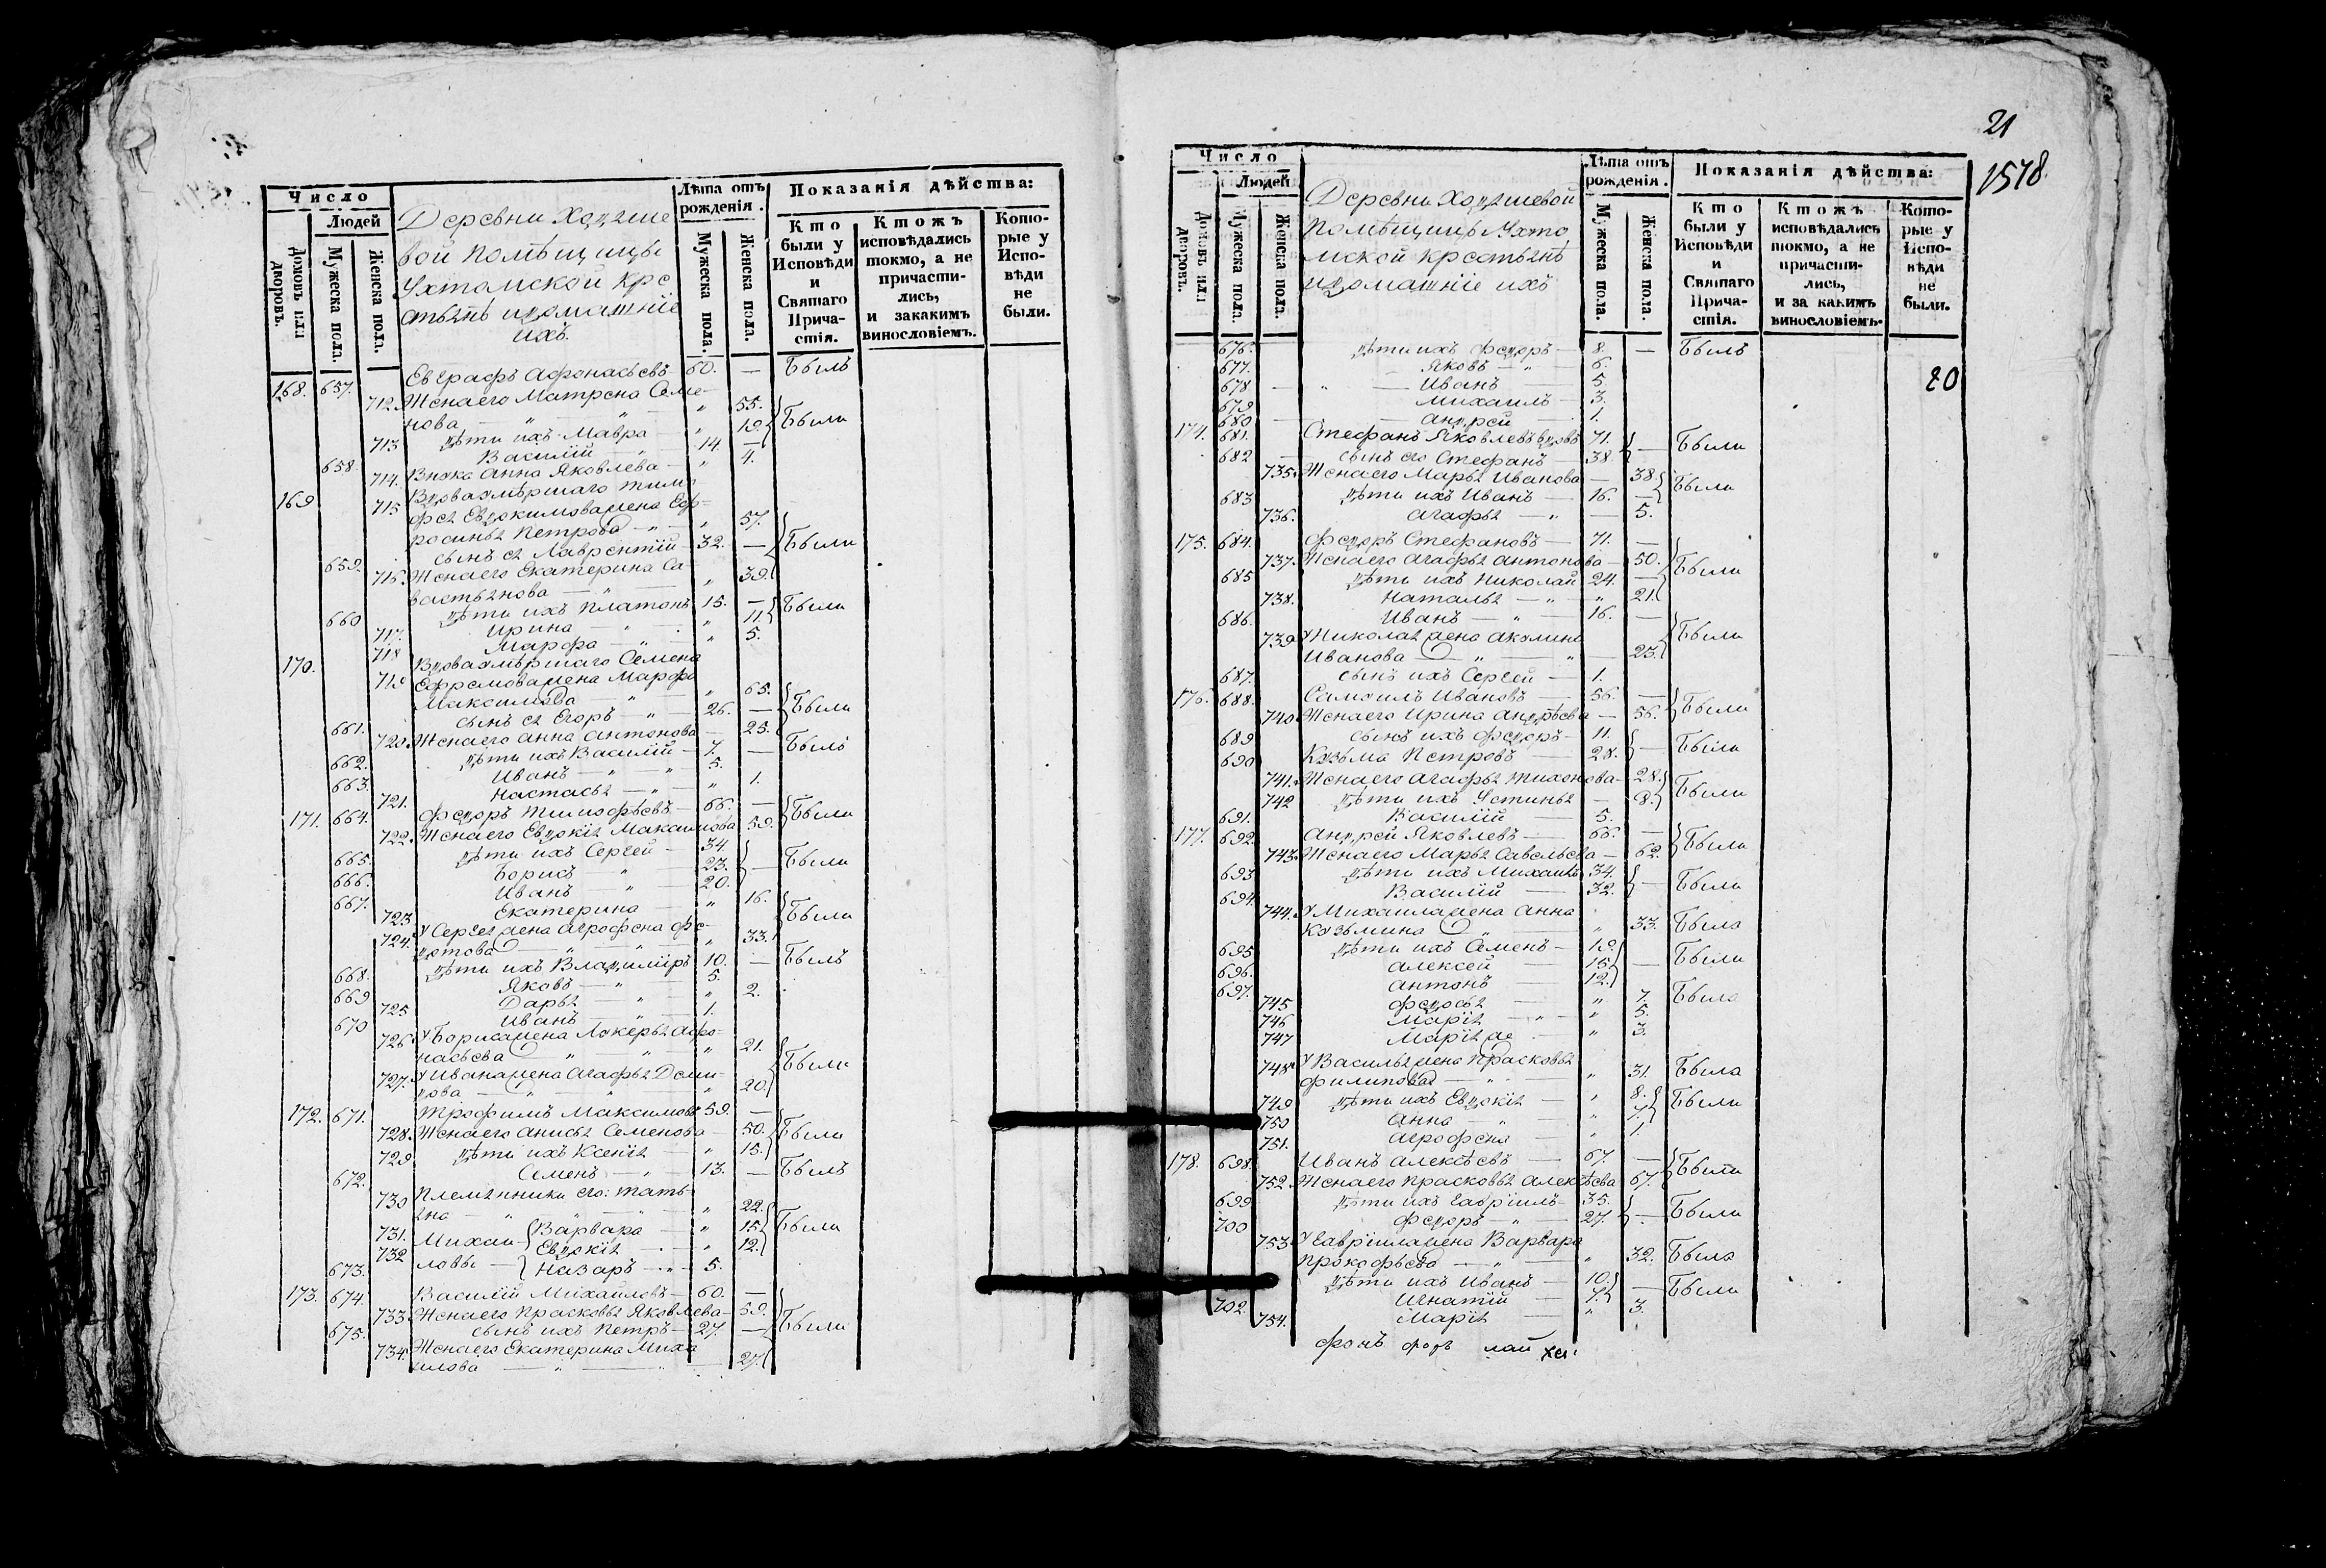 Число
Людей
Домовъ или дворовъ.
Мужеска пола.
Женска пола.
Деревни Ходяше
вой помѣщицы
Ухтомской кре
стьянѣ идомашніе
ихъ.
Лѣта отъ рожденія.
Мужеска пола.
Женска пола.
Показанія дѣйства:
Кто были у Исповѣди и Святаго Причастія.
Ктожъ исповѣдались токмо, а не причастились, и закакимъ винословіемъ.
Которые у Исповѣди не были.
168. 657. Евграфъ Афонасьевъ 60. — Былъ
712. Женаего Матрена Семе-
нова — " — " 55. Были
713 дѣти ихъ Мавра — " 19.
658. Василій — 14. —
714. Внука Анна Яковлева — " 4.
169 715 Вдоваумершаго Тимо
фея Евдокимоважена Еф-
росинья Петрова — " — " 57. Были
659. сынъ ея Лаврентій — 32. —
716. Женаего Екатерина Са-
вастьянова — " — " 39.
660 дѣти ихъ Платонъ 15. — Были
717. Ирина — " — " 11.
718 Марфа — " — " 5.
170. 719 Вдоваумершаго Семена
Ефремоважена Марфа
Максимова — " — " 65. Были
661. сынъ ея Егоръ — " — 26. —
720. Женаего Анна Антонова — 25.
662. дѣти ихъ Василій — 7. — Былъ
663. Иванъ — " — 5.
721. Настасья — " — " 1.
171. 664. Федоръ Тимофѣевъ — 66. — Были
722. Женаего Евдокія Максимова 59.
665. дѣти ихъ Сергей — 34. Были
666. Борисъ — " — 23. —
667. Иванъ — " — 20.
723 Екатерина — " 16. Были
724. У Сергея жена Агрофена Фе-
дотова — " — " — " 33.
668. дѣти ихъ Владиміръ 10. — Былъ
669 Яковъ — " — 5.
725 Дарья — " — " 2.
670 Иванъ — " — 1.
726 У Бориса жена Лукерья Афо-
насьева — " — " — " 21. Были
727. У Ивана жена Агафья Деми-
дова — " — " — " 20.
172. 671. Трофимъ Максимовъ 59. —
728. Женаего Анисья Семенова — 50. Были
729 дѣти ихъ Ксенія — " 15.
672. Семенъ — " — 13. — Былъ
730 Племянники его: Тать-
яна — " — " — " 22. Были
731. Михаи- Варвара — " 15.
732 ловы — Евдокія — " 12.
673. Назаръ — " — 5.
173. 674. Василій Михайловъ — 60. —
733 Женаего Прасковья Яковлева — 59. Были
675. сынъ ихъ Петръ — 27. —
734. Женаего Екатерина Миха
илова — " — " — 27.
21
1578.
Число
Людей
Домовъ или дворовъ.
Мужеска пола.
Женска пола.
Деревни Ходяшевой
Помѣщицы Ухто
мской крестьянѣ
идомашніе ихъ
Лѣта отъ рожденія.
Мужеска пола.
Женска пола.
Показанія дѣйства:
Кто были у Исповѣди и Святаго Причастія.
Ктожъ исповѣдались токмо, а не причастились, и за какимъ винословіемъ.
Которые у Исповѣди не были.
676. дѣти ихъ Федоръ — 8. — Былъ
677. Яковъ — " — 6.
678 — " — Иванъ — 5.
679 Михаилъ — 3.
680 — Андрей — 1.
174. 681. Стефанъ Яковлевъ вдовъ 71. Были
682 — сынъ его Стефанъ — 38. —
735. Женаего Марья Иванова — 38. Были
683 дѣти ихъ Иванъ — 16. —
736. Агафья — " — 5.
175. 684. Федоръ Стефановъ — 71. —
737. Женаего Агафья Антонова — 50. Были
685 дѣти ихъ Николай 24. —
738. Наталья — " — " 21.
686. Иванъ — " — 16. —
739 У Николая жена Акулина Были
Иванова — " — " — 23.
687. сынъ ихъ Сергей — 1.
176. 688. Самоилъ Ивановъ — 56. — Были
740 Женаего Ирина Андрѣева — 56.
689 сынъ ихъ Федоръ — 11. Были
690 Кузьма Петровъ — 28. —
741. Женаего Агафья Тихонова — 28. Были
742 дѣти ихъ Устинья — 8.
691. Василій — 5.
177. 692. Андрей Яковлевъ — 66. — Были
743. Женаего Марья Савельева — 62.
693 дѣти ихъ Михаилъ 34. Были
694. Василій — 32. —
744. У Михаила жена Анна
Казьмина — " — " 33. Была
695 дѣти ихъ Семенъ — 19. Были
696. Алексей 15. —
697. Антонъ — 12.
745 Федосья — " 7. Была
746 Марія — " — " 5.
747 Марія же — " 3.
748 У Василья жена Прасковья
Филипова — " — " 31. Была
749 дѣти ихъ Евдокія — " 8. Были
750 Анна — " — " 7.
751. Агрофена — " 1.
178. 698. Иванъ Алексѣевъ — 67. — Были
752. Женаего Прасковья Алексѣева 67.
699 дѣти ихъ Гаврійлъ — 35. Были
700 Федоръ — " — 27. —
753 У Гавріила жена Варвара
Прокофьева — " — " 32. Была
дѣти ихъ Иванъ — 10. — Были
702. Игнатій — 7.
754. Марія — " 3.
20